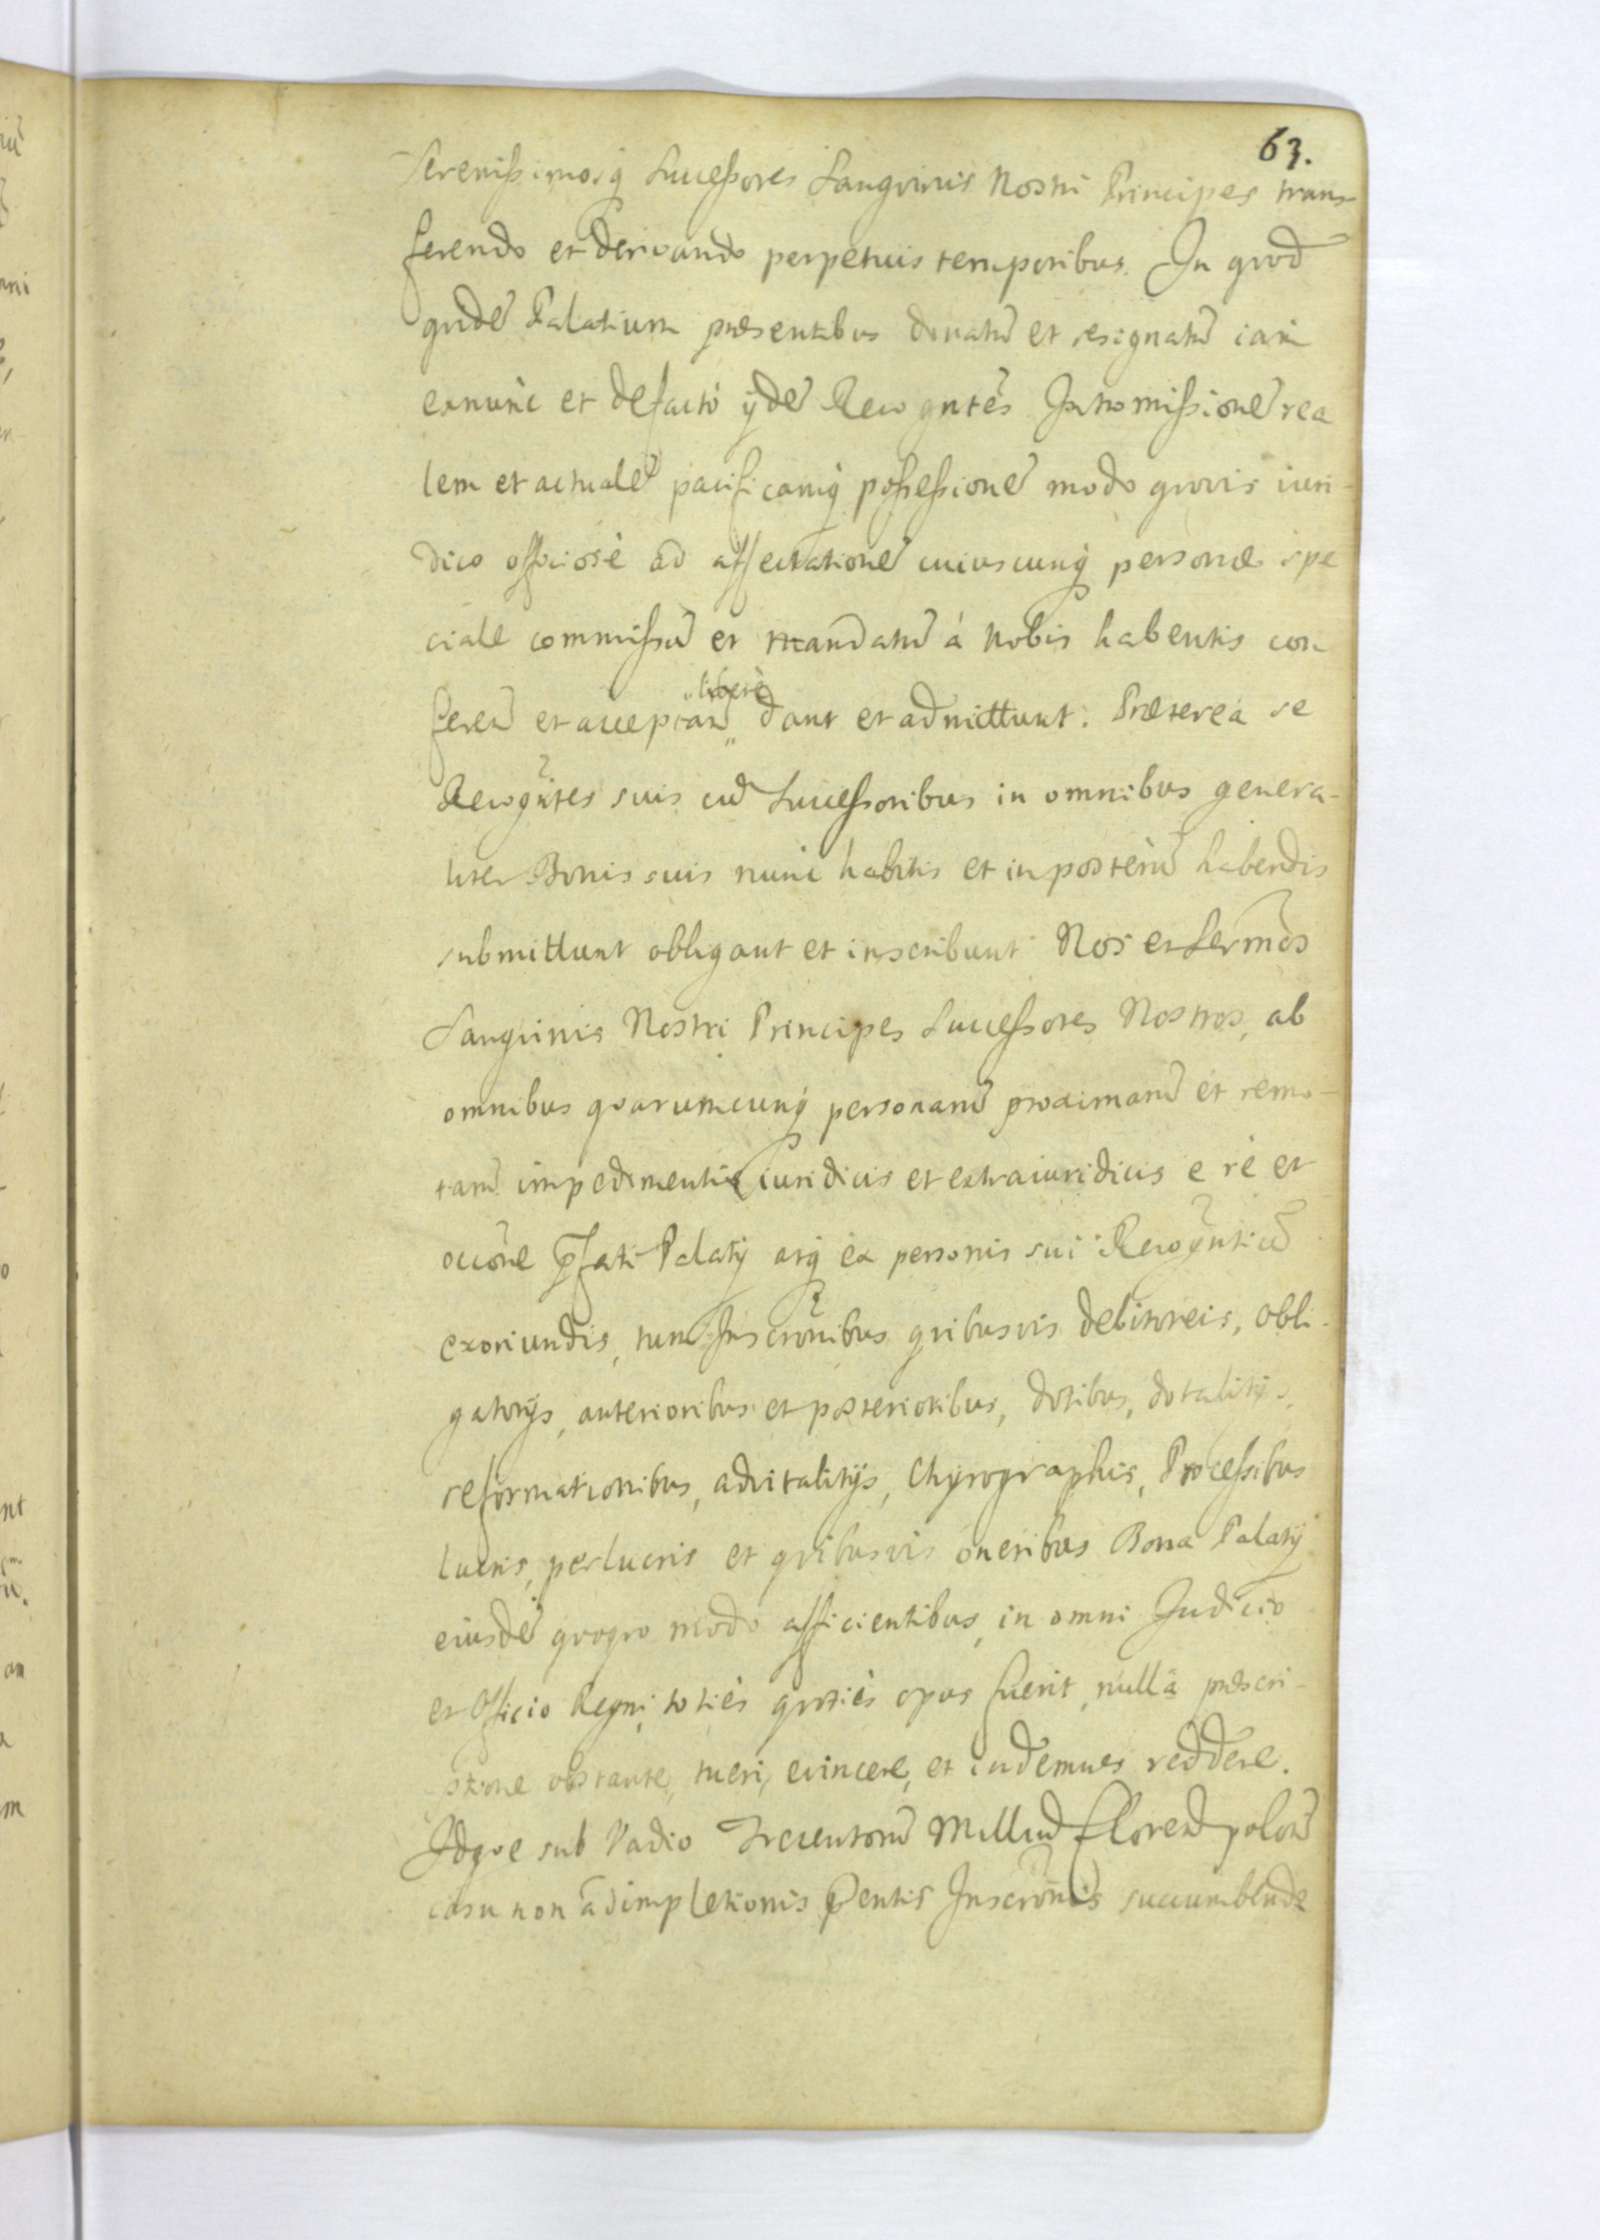 63.
Serenissimosq́ Successores Sangvinis Nostri Principes trans-
ferendo et Derivando perpetuis temporibus. In qvod
qvidẽ Palatium præsentibus donatũ et resignatũ iam
exnunc et defacto ijdẽ Recogntẽs Intromissionẽ rea
lem et actualẽ pacificamq́ possessionẽ modo qvovis iuri-
dico officiosè ad affectationẽ cuiuscunq́ personæ spe
ciale commissũ et mandatũ à Nobis habentis con
feren̄ et acceptan̄ „liberè„ dant et admittunt. Præterea se
Recogñtes suis cũ Successoribus in omnibus genera-
liter Bonis suis nunc habitis et in posterũ habendis
submittunt obligant et inscribunt Nos et Sermõs
Sangvinis Nostri Principes Successores Nostros, ab
omnibus qvarumcunq́ personarũ proximarũ et remo-
tarũ impedimentis iuridicis et extraiuridicis e re et
occõne p̃fati Palatij atq́ ex personis sui Recogñtiũ
exoriundis, tum Inscrõnibus qvibusvis debitoreis, obli-
gatorijs, anterioribus et posterioribus, dotibus, dotalitijs,
reformationibus, advitalitijs, Chyrographis, Processibus
lucris, perlucris et qvibusvis oneribus Bona Palatij
eiusdẽ qvoqvo modo afficientibus, in omni Judicio
et Officio Regni, toties qvoties opus fuerit, nullâ præscri-
ptione obstante, tueri, evincere, et indemnes reddere.
Idqve sub Vadio Trecentorũ Milliũ Floren̄ polon̄
casu non adimpletionis p̃entis Inscrõnis succumbendæ